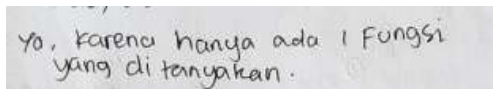 Yo, karena hanya ada 1 Fungsi
yang di tanyakan.